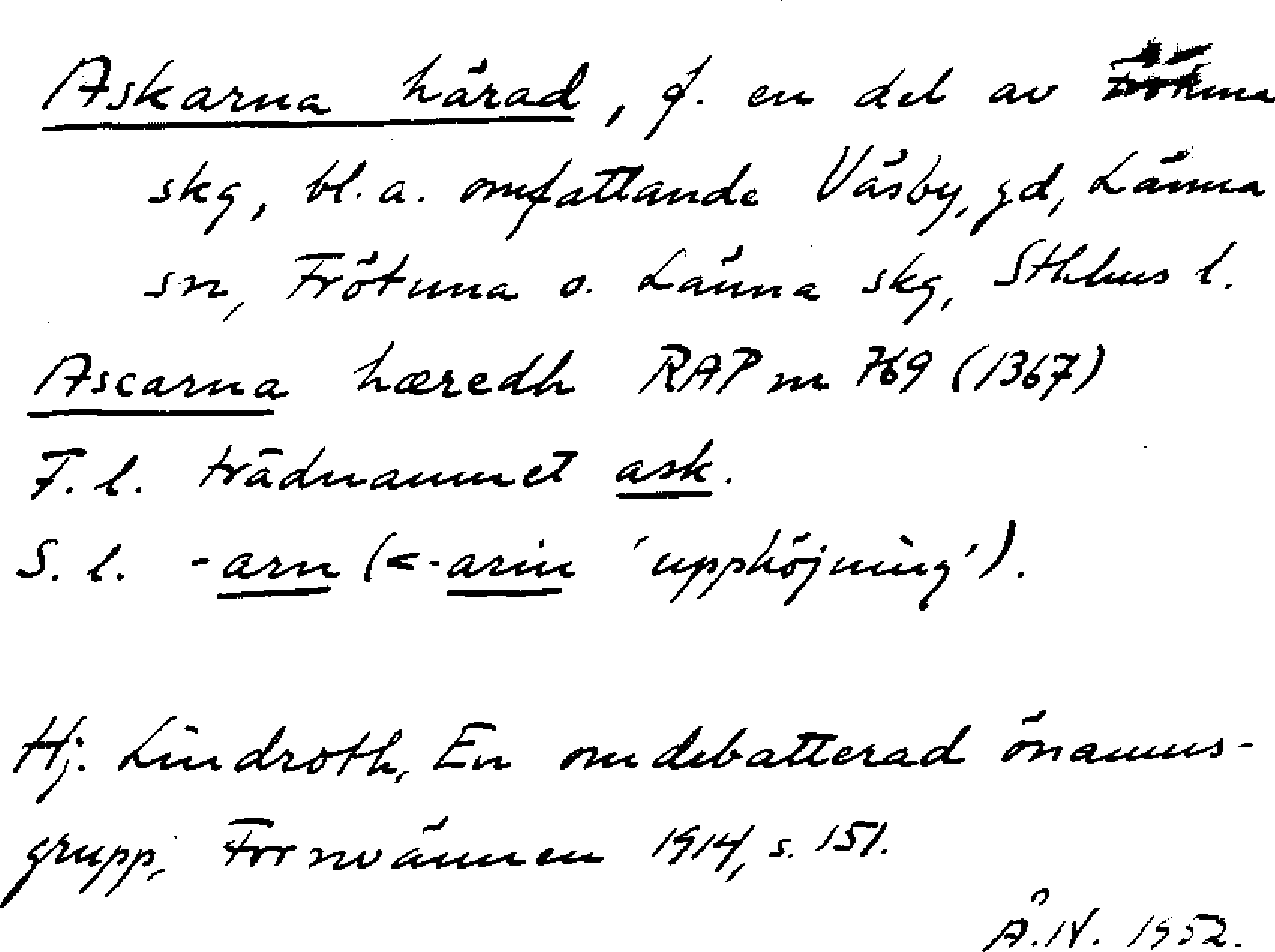 Askarna härad, f. en del av Länna
skg, bl.a. omfattande Väsby, gd, Länna
sn, Frötuna o. Länna skg, Sthlms l.
Ascarna hæredh RAP nr 769 (1367)
F. l. trädnamnet ask.
S. l. -arn (<-arin 'upphöjning').
Hj. Lindroth, En omdebatterad önamns-
grupp, Fornvännen 1914, s. 151.
Å.N. 1952.